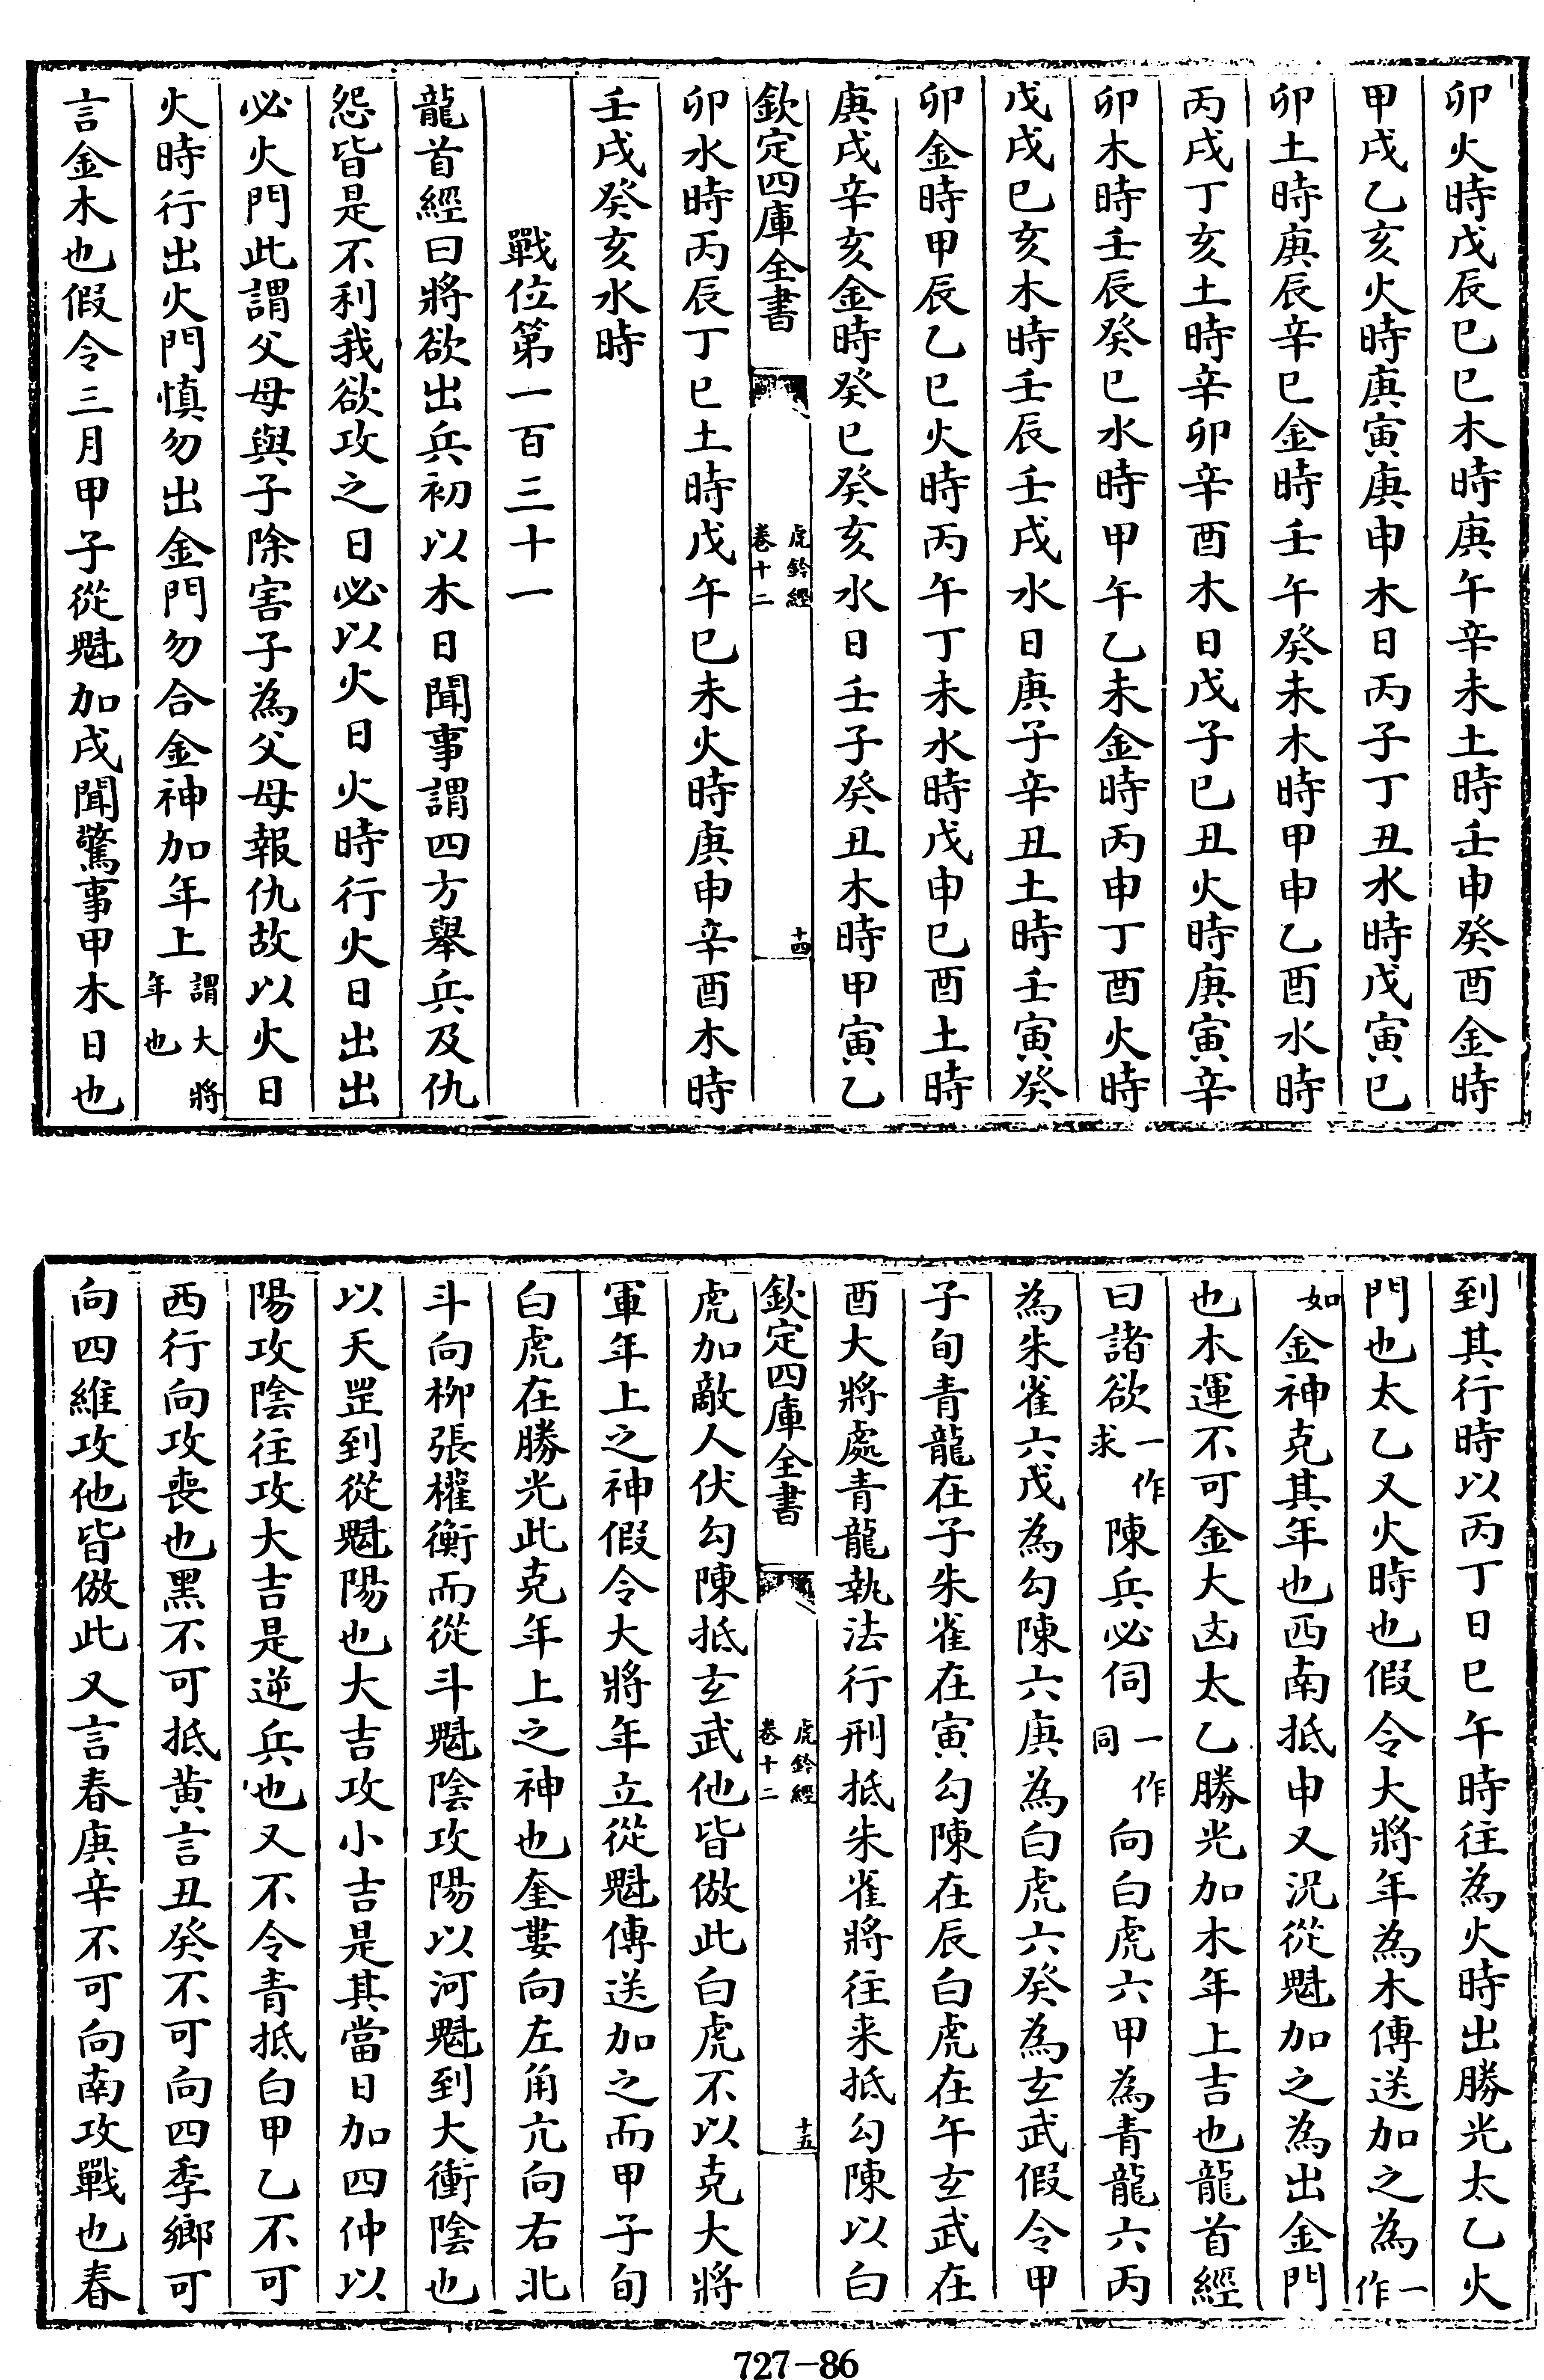 卯火時戊辰巳巳木時庚午辛未土時壬申癸酉金時
甲戌乙亥火時庚寅庚申木日丙子丁丑水時戊寅巳
卯土時庚辰辛巳金時壬午癸未木時甲申乙酉水時
丙戌丁亥土時辛卯辛酉木日戊子巳丑火時庚寅辛
卯木時壬辰癸巳水時甲午乙未金時丙申丁酉火時
戊戌巳亥木時壬辰壬戌水日庚子辛丑土時壬寅癸
卯金時甲辰乙巳火時丙午丁未水時戊申巳酉土時
庚戌辛亥金時癸巳癸亥水日壬子癸丑木時甲寅乙
欽定四庫全書 虎鈐經卷十二 十四
卯水時丙辰丁巳土時戊午巳未火時庚申辛酉木時
壬戌癸亥水時
戰位第一百三十一
龍首經曰將欲出兵初以木日聞事謂四方舉兵及仇
怨皆是不利我欲攻之日必以火日火時行火日出出
必火門此謂父母與子除害子為父母報仇故以火日
火時行出火門慎勿出金門勿合金神加年上謂大將年也
言金木也假令三月甲子從魁加戌聞驚事甲木日也
到其行時以丙丁日巳午時往為火時出勝光太乙火
門也太乙又火時也假令大將年為木傳送加之為一作
如金神克其年也西南抵申又況從魁加之為出金門
也木運不可金大凶太乙勝光加木年上吉也龍首經
曰諸欲一作求陳兵必伺一作同向白虎六甲為青龍六丙
為朱雀六戊為勾陳六庚為白虎六癸為玄武假令甲
子旬青龍在子朱雀在寅勾陳在辰白虎在午玄武在
酉大將處青龍執法行刑抵朱雀將往来抵勾陳以白
欽定四庫全書 虎鈐經卷十二 十五
虎加敵人伏勾陳抵玄武他皆倣此白虎不以克大將
軍年上之神假令大將年立從魁傳送加之而甲子旬
白虎在勝光此克年上之神也奎婁向左角亢向右北
斗向柳張權衡而從斗魁陰攻陽以河魁到大衝陰也
以天罡到從魁陽也大吉攻小吉是其當日加四仲以
陽攻陰往攻大吉是逆兵也又不令青抵白甲乙不可
西行向攻喪也黑不可抵黃言丑癸不可向四季鄉可
向四維攻他皆倣此又言春庚辛不可向南攻戰也春
727-86